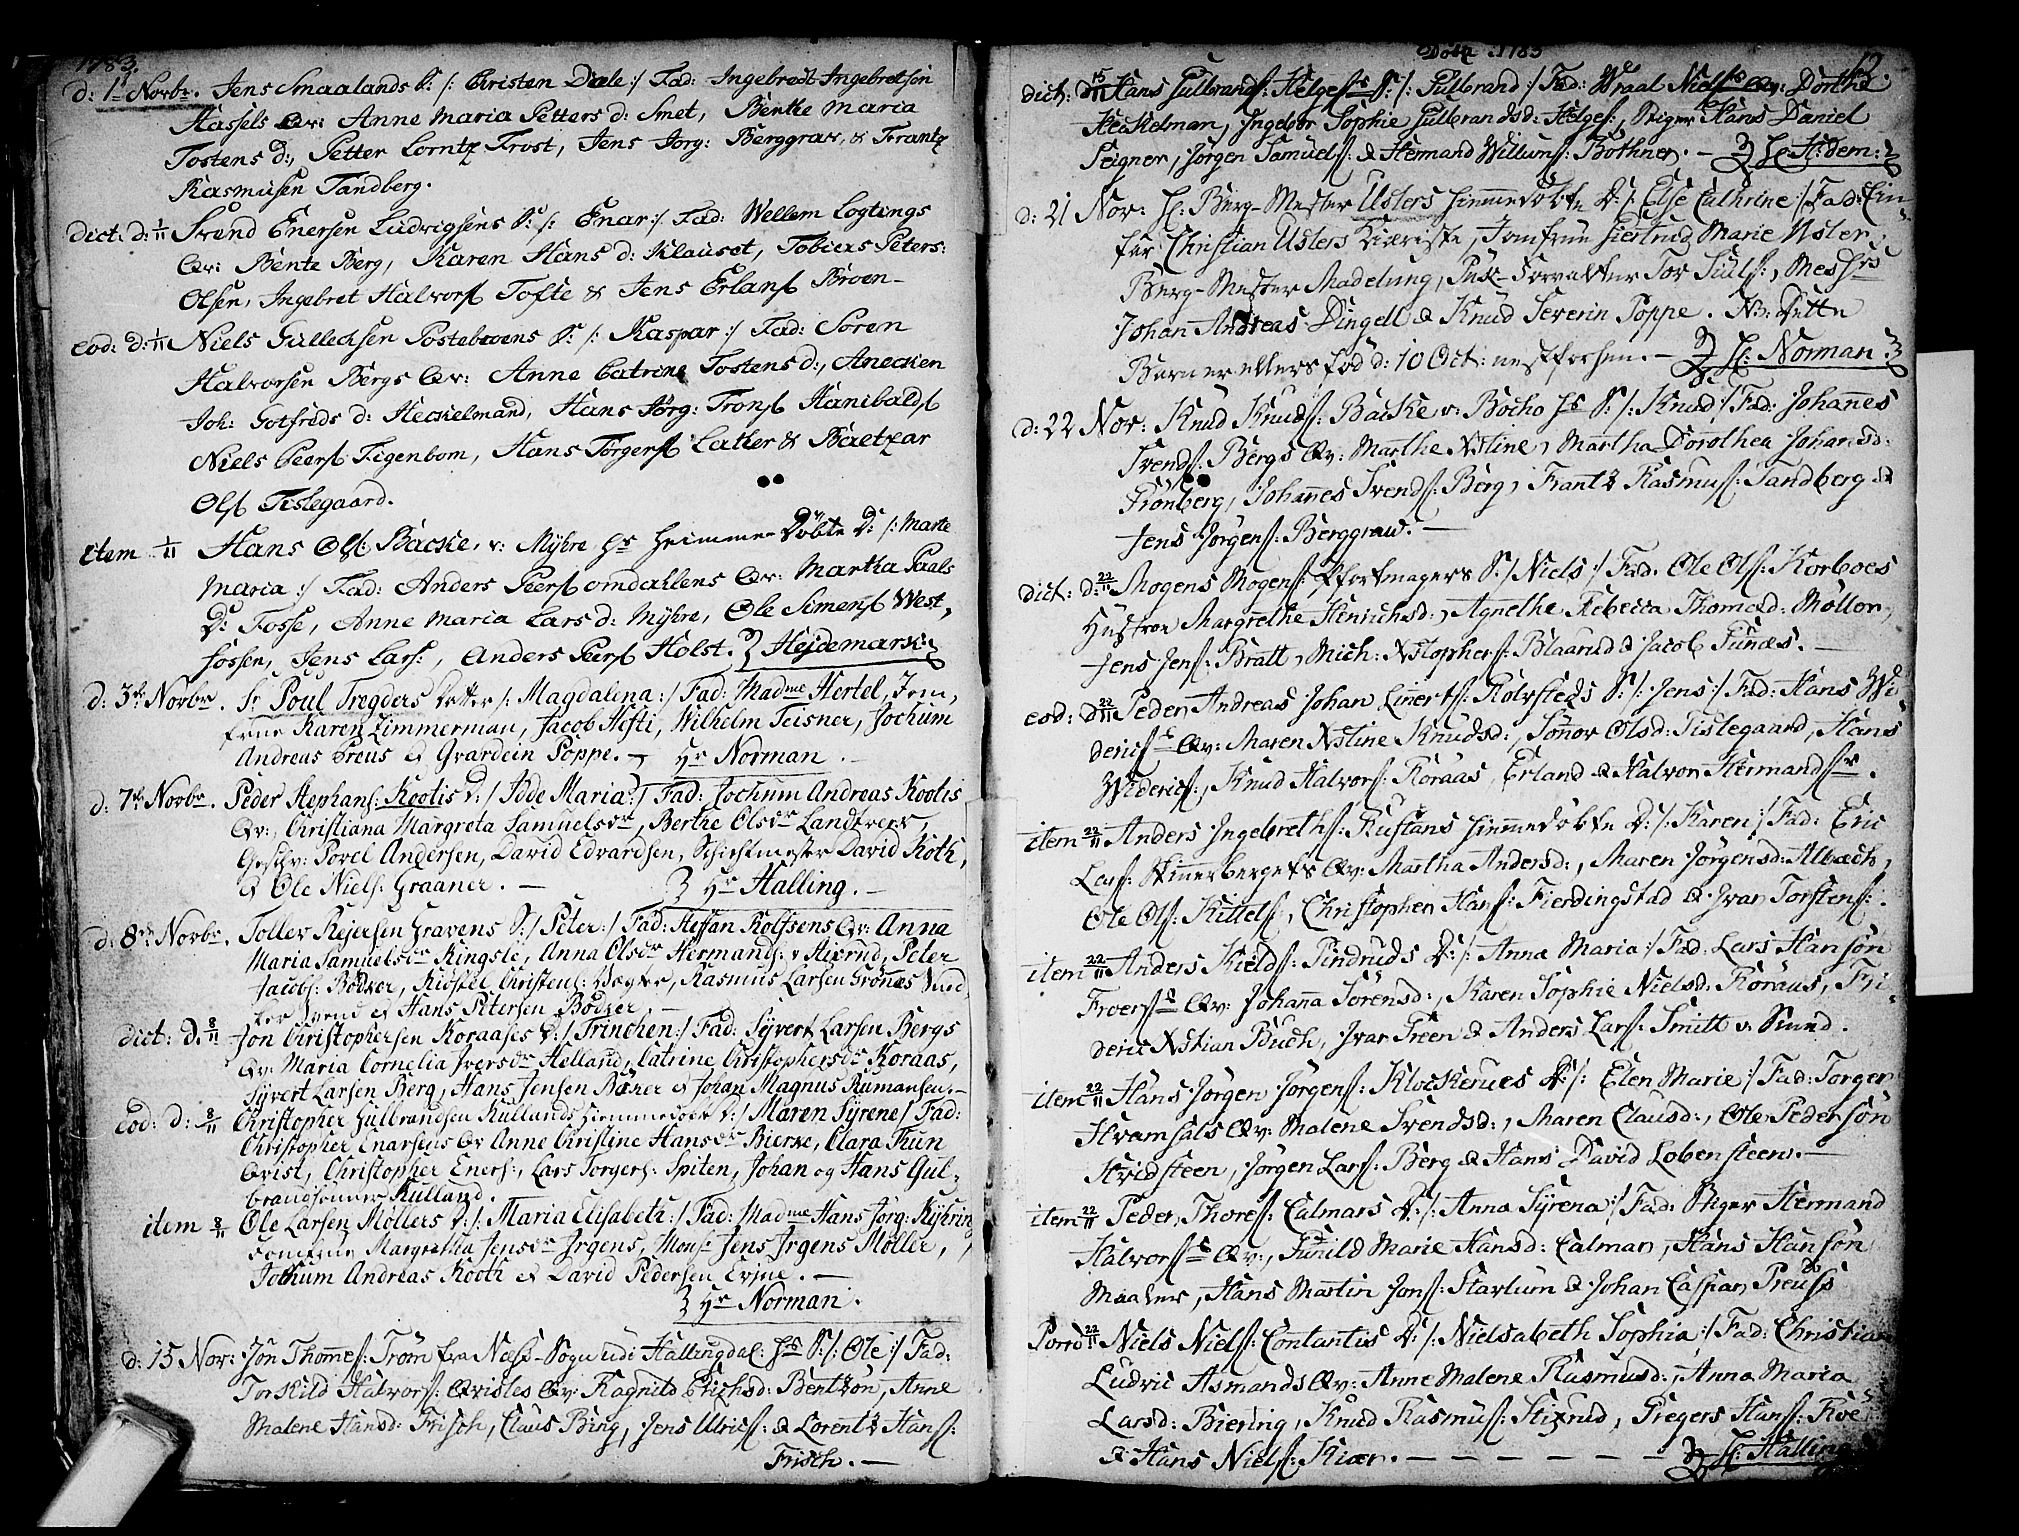 1783.
d: 1ste Novbr. Jens Smaalands S: /: Cristen Dæle :/ Fad: Ingebredt Ingebretsøn
Hassels Qv: Anne Maria Petters d: Smet, Benthe Maria
Tostens d:, Petter Lorntz Frost, Jens Jörg: Berggrav, & Frantz
Rasmusen Tandberg.
dict: d: 1/11 Svend Enersen Ludvigsens S: /: Enar :/ Fad: Wellem Logtings
Qv: Bente Berg, Karen Hans d: Klauset, Tobias Peters:
Olsen, Ingebret Halvors Tofte & Jens Erlans Broen-
eod: d: 1/11 Niels Gullechsen Postebroens S: /: Kaspar :/ Fad: Søren
Halvorsen Bergs Qv: Anne Catrine Tostens d:, Anecken
Joh: Gotfreds d: Heckelmand, Hans Jörg: Trons Hanibalds
Niels Peers Figenbom, Hans Törgers Lather & Baltzar
Ols Tislegaard.
item 1/11 Hans Ols: Backe, v: Myhre hs hiemme-Döbte D: /: Marte
Maria :/ Fad: Anders Peers omdahlens Qv: Martha Paals
D: Fosse, Anne Maria Lars d: Myhre, Ole Simens West,
fossen, Jens Lars:, Anders Peers Holst. Hr Hejdemarck
d: 3de Novbr. Sr Poul Tregders Datter /: Magdalena :/ Fad: Madme Hertel, Jom,
frue Karen Zimmerman, Jacob Hefti, Wilhelm Teisner, Jochum
Andreas Preus & Gvardein Poppe. Hr Norman.
d: 7de Novbr. Peder Stephans: Kootis D: /: Idde Maria :/ Fad: Jochum Andreas Kootis
Qv:, Christiana Margreta Samuelsdr, Berthe Olsdr Landtverk,
Geschv: Povel Andersen, David Edvardsen, Schichtmester David Koth,
& Ole Niels: Graaner. Hr Halling.
d: 8de Novbr. Tollev Rejersen Gravens S: /: Peter :/ Fad: Steffan Rolfsens Qv: Anna
Maria Samuelsdr Kingsle, Anna Olsdr Hermands: v Stixrud, Peter
Jacobs: Bödker, Kiöstel Christens: Vægter, Rasmus Larsen Grönnæs Vind
ter svend & Hans Petersen Bödker.
dict: D. 8/11 Jon Christophersen Koraases D: /: Trinchen :/ Fad: Syvert Larsen Bergs
Qv: Maria Cornelia Iversdr Helland, Catrine Christophersdr Koraas,
Syvert Larsen Berg, Hans Jensen Bæker & Johan Magnus Rumansen.
Eod: D: 8/11 Christopher Gulbrandsen Rullands hiemmedöbt D: /: Maren Syrene / Fad:
Christopher Enarsens Qv Anne Christine Hansdr Bierke, Clara Thun
Qvist, Christopher Eners:, Lars Torgers: Spiten, Johan og Hans Gul-
brandsønner Rulland.
item 8/11 Ole Larsen Møllers D: /: Maria Elisabeth :/ Fad: Madme Hans Jörg: Kyhring
Jomfrue Margretha Jensdr Jrgens, Monsr Jens Jrgens Møller,
Jochum Andreas Kooth & David Pedersen Evjue.
Hr Norman.
d: 15 Nov: Jon Thommes: Trøm fra Næss-Sogn udi Hallingdal: hs S: /: Ole :/ Fad:
Torskild Halvors: Qvisles Qv: Ragnild Erichsd: Bentzön, Anne
Malene Hansd: Frisch, Claus Bing, Jens Ulrics: & Lorentz Hans:
Frisch.
Döbte 1783
12.
dict: d 15/11 Hans Gulbrands: Helges:s S: /: Gulbrand :/ Fad: Wraal Niels:s Qv: Dorthe
Heckelman, Ingebor Sophie Gulbrandsd: Helges:, Stiger Hans Daniel
Seigner, Jørgen Samuels: & Hermand Willums: Bothner. Hr Hedem:
d: 21 Nov: Hr Berg-Mester Usters hiemmedöbte D: /: Else Cathrine :/ Fad: Lin-
før Christian Usters Kiæriste, Jomfrue Giertrud Marie Uster,
Berg-Mester Madelung, Puk-Forvalter Tor Juls:, Mess Hrs
Johan Andreas Dingell & Knud Severin Poppe. NB: Dette
Barn er ellers föd d: 10 Oct: nestforhen. Hr: Norman
d: 22 Nov: Knud Knuds: Backe v: Bocho hs S: /: Knud :/ Fad: Johannes
Svends: Bergs Qv: Marthe Xstine, Martha Dorothea Johansd:
Krönberg, Johannes Svends: Berg, Frantz Rasmus: Tandberg &
Jens Jørgens: Berggraw.
dict: d: 22/11 Mogens Mogens: Pfortmagers S: / Niels :/ Fad: Ole Ols: Korboes
Hustroe Margrethe Henrichsd:, Agnethe Rebecca Thomesd: Møller,
Jens Jens: Bratt, Mich: Xstophers: Blaarud & Jacob Funæs.
eod: d 22/11 Peder Andreas Johan Linerts: Rolvsteds S: /: Jens :/ Fad: Hans Wi-
derics:s Qv: Maren Xstine Knudsd:, Sönor Olsd: Tislegaard, Hans
Widerics:, Knud Halvors: Koraas, Erland & Halvor Hermands:r.
item 22/11 Anders Ingebreths: Rustans hiemmedöbte D: /: Karen :/ Fad: Eric
Lars: Skinnerbergets Qv: Martha Andersd:, Maren Jørgensd: Albech,
Ole Ols: Kittels:, Christopher Hans: Fierdingstad & Iver Torstens:.
item 22/11 Anders Kields: Pindruds D: /: Anna Maria :/ Fad: Lars Hansøn
Froers:s Qv: Johanna Sörensd:, Karen Sophie Nielsd: Koraas, Fri-
deric Xstian Buch, Iver Green & Anders Lars: Smitt v: Sund.
item 22/11 Hans Jørgen Jørgens: Klockerues D: /: Elen Marie :/ Fad: Torger
Hvamsals Qv: Malene Svendsd:, Maren Clausd:, Ole Pedersøn
Hvidsteen, Jørgen Lars: Berg & Hans David Lobensteen.
item 22/11 Peder Thores: Calmars D: /: Anna Syrena :/ Fad: Stiger Hermand
Halvors:s Qv:, Gunild Marie Hansd: Calmar, Hans Hansøn
Maaler, Hans Martin Jons: Starlum & Johan Caspar Preuss
Porro 22/11 Niels Niels: Contantius D: /: Nielsabeth Sophia :/ Fad: Christian
Ludvic Asmands Qv: Anne Malene Rasmusd:, Anna Maria
Larsd: Biering, Knud Rasmus: Stixrud, Gregers Hans: Røe
& Hans Niels: Kiær. Hr: Halling